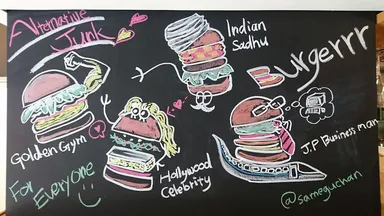 Alternative
Junk
Burgerrr
Indian
Sadhu
Golden Gym
Hollywood
Celebrity
J.P Business man
For
Everyone
@sameguchan